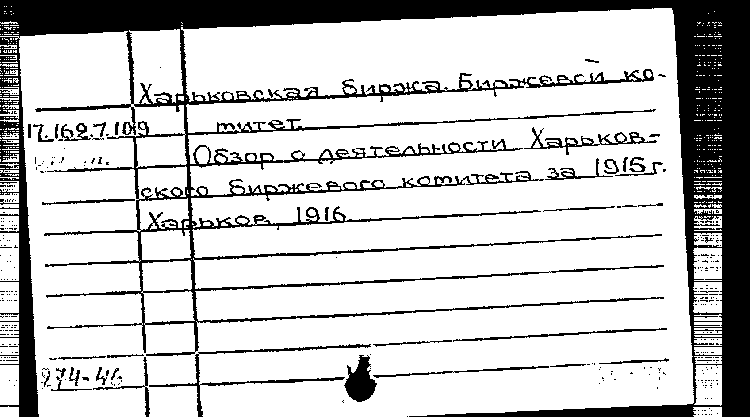 Харьковская биржа. Биржевой ко-
17.162.7.109 митет.
Обзор о деятельности Харьков-
ского биржевого комитета за 1915 г.
Харьков, 1916.
274-46